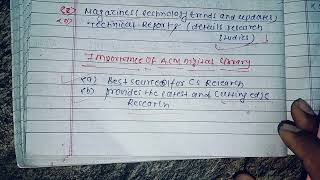 Magazines (technology trends and updates)
Technical Reports (details research
studies)
Importance Of ACM Digital Library
(a) Best source for CS Research
(b) provides the latest and Cutting edge
Research